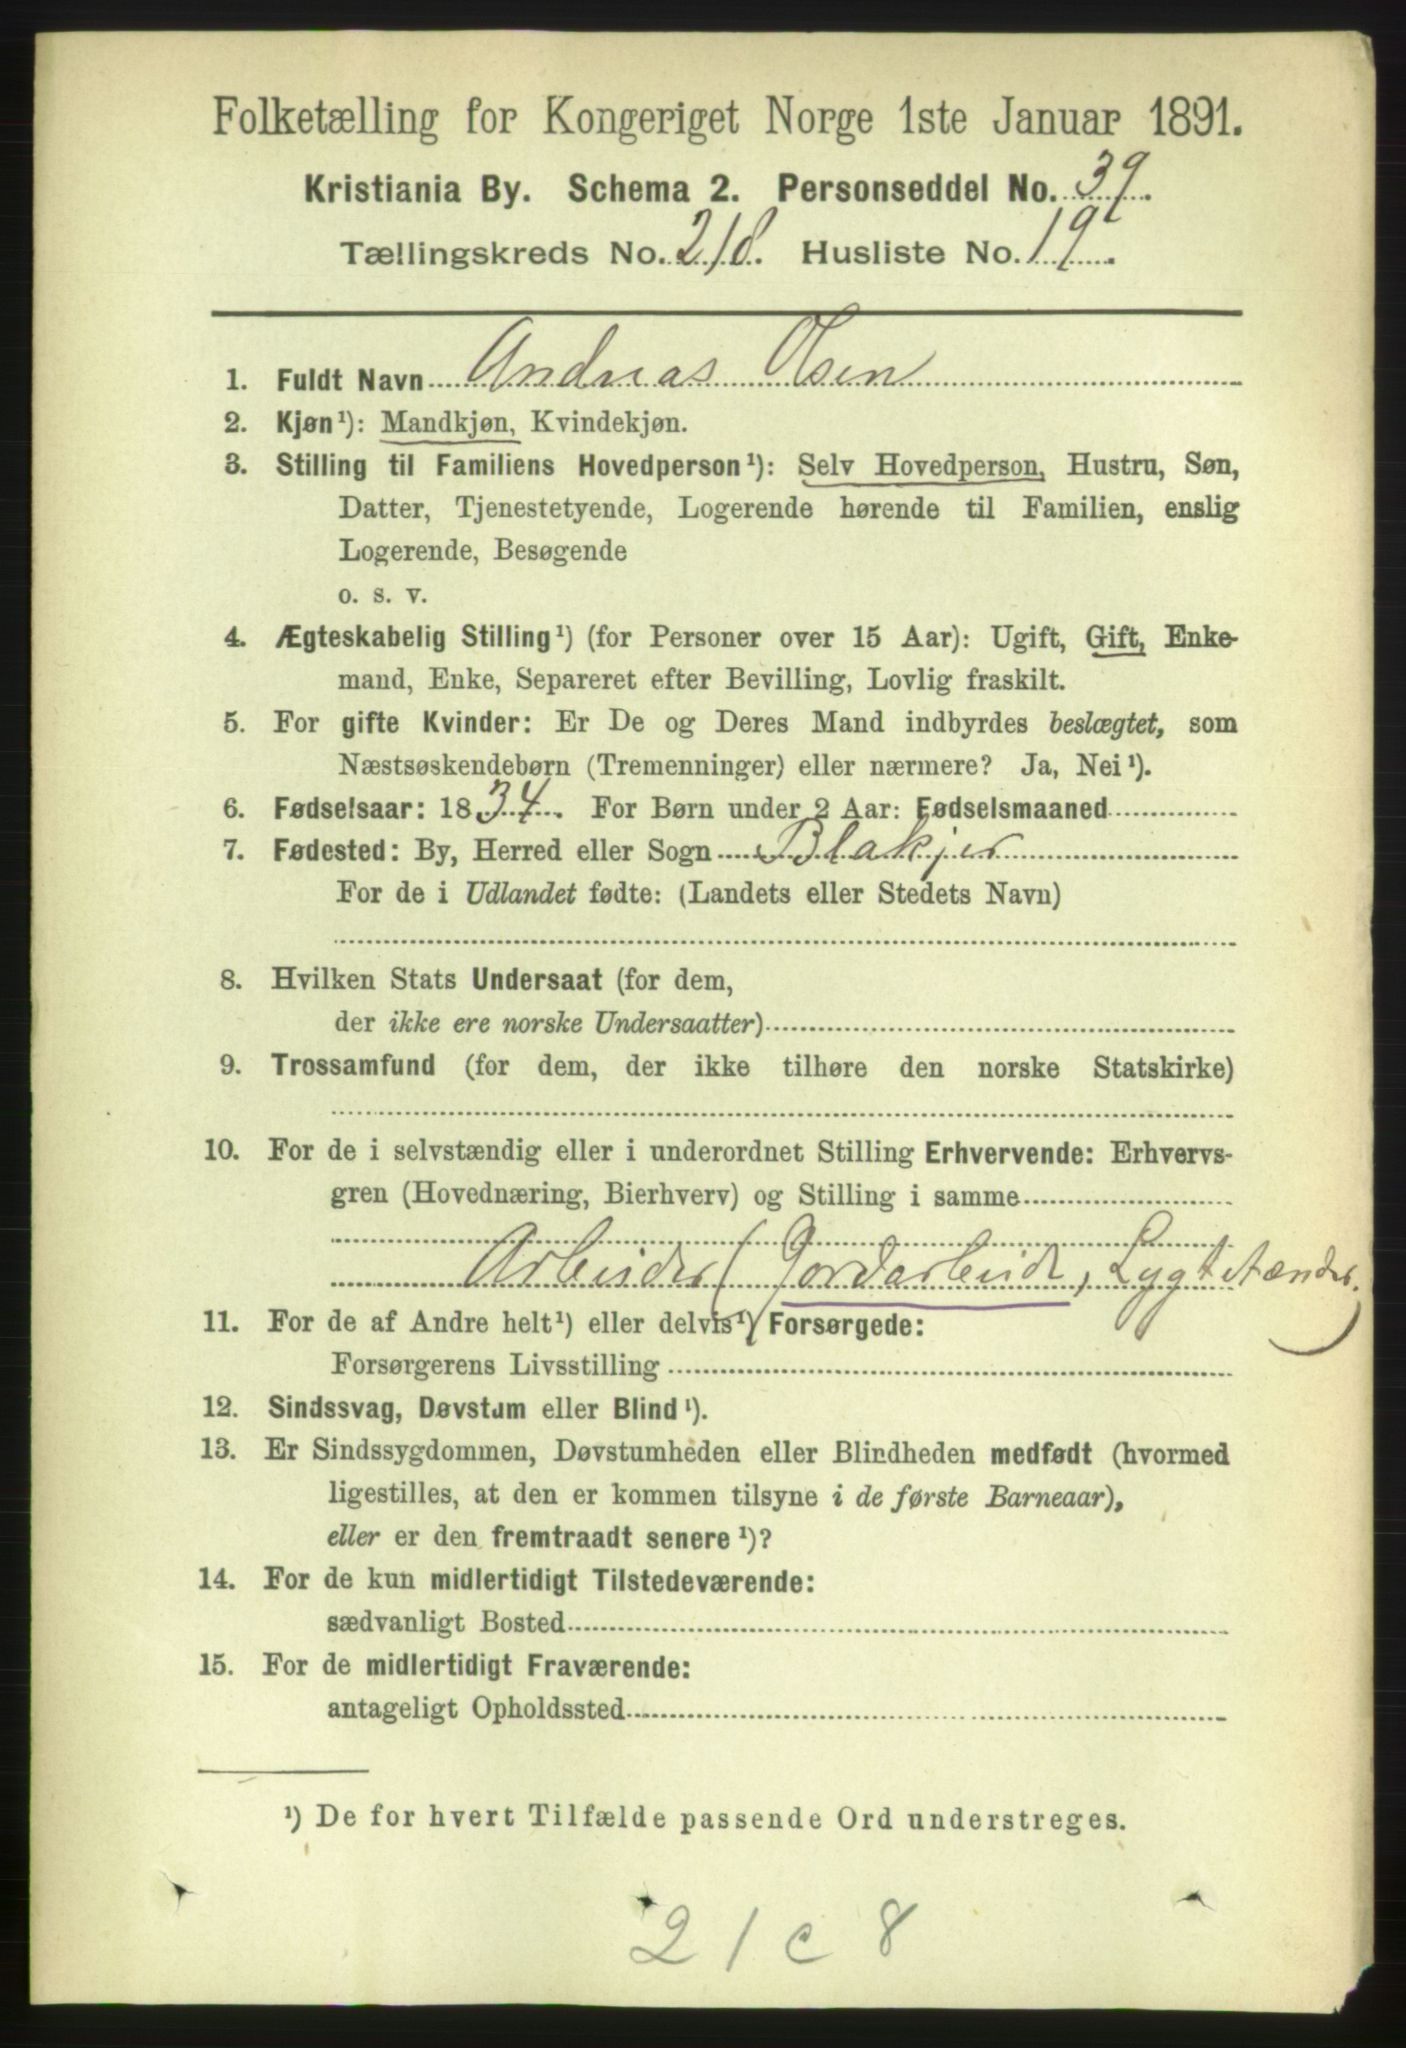 Folketælling for Kongeriget Norge 1ste Januar 1891.
Kristiania By. Schema 2. Personseddel No. 39.
Tællingskreds No. 218. Husliste No. 19.
1. Fuldt Navn Andreas Olsen
2. Kjøn¹): Mandkjøn, Kvindekjøn.
3. Stilling til Familiens Hovedperson¹): Selv Hovedperson, Hustru, Søn,
Datter, Tjenestetyende, Logerende hørende til Familien, enslig
Logerende, Besøgende
o. s. v.
4. Ægteskabelig Stilling¹) (for Personer over 15 Aar): Ugift, Gift, Enke-
mand, Enke, Separeret efter Bevilling, Lovlig fraskilt.
5. For gifte Kvinder: Er De og Deres Mand indbyrdes beslægtet, som
Næstsøskendebørn (Tremenninger) eller nærmere? Ja, Nei¹).
6. Fødselsaar: 1834. For Børn under 2 Aar: Fødselsmaaned
7. Fødested: By, Herred eller Sogn Blakjer
For de i Udlandet fødte: (Landets eller Stedets Navn)
8. Hvilken Stats Undersaat (for dem,
der ikke ere norske Undersaatter)
9. Trossamfund (for dem, der ikke tilhøre den norske Statskirke)
10. For de i selvstændig eller i underordnet Stilling Erhvervende: Erhvervs-
gren (Hovednæring, Bierhverv) og Stilling i samme
Arbeider (Jordarbeide, Lygtetænder.)
11. For de af Andre helt¹) eller delvis¹) Forsørgede:
Forsørgerens Livsstilling
12. Sindssvag, Døvstum eller Blind¹).
13. Er Sindssygdommen, Døvstumheden eller Blindheden medfødt (hvormed
ligestilles, at den er kommen tilsyne i de første Barneaar),
eller er den fremtraadt senere¹)?
14. For de kun midlertidigt Tilstedeværende:
sædvanligt Bosted
15. For de midlertidigt Fraværende:
antageligt Opholdssted
¹) De for hvert Tilfælde passende Ord understreges.
21c8